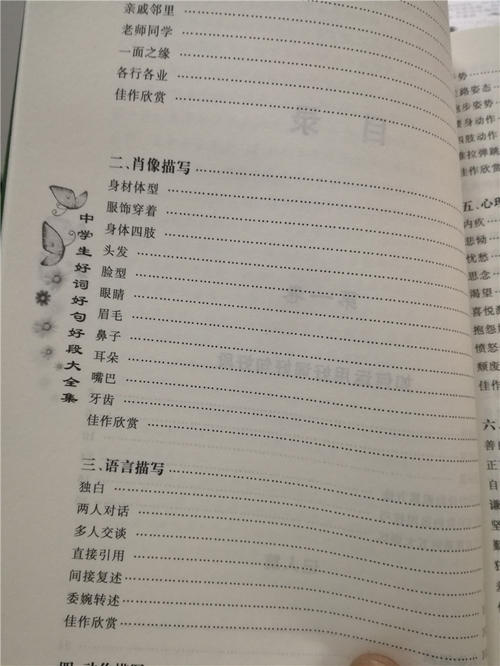 亲戚邻里
老师同学
一面之缘
各行各业
佳作欣赏
二、肖像描写
身材体型
服饰穿着
身体四肢
头发
脸型
眼睛
眉毛
鼻子
耳朵
嘴巴
牙齿
佳作欣赏
三、语言描写
独白
两人对话
多人交谈
直接引用
间接复述
委婉转述
佳作欣赏
四、动作描写
中学生好词好句好段大全集
姿态
步姿势
身动作
四肢动作
推拉弹跳
佳作欣赏
五、心理
内疚
悲恸
忧愁
思念
渴望
喜悦
抱怨
愤怒
颓废
六、
善
正
自
谦
坚
勤